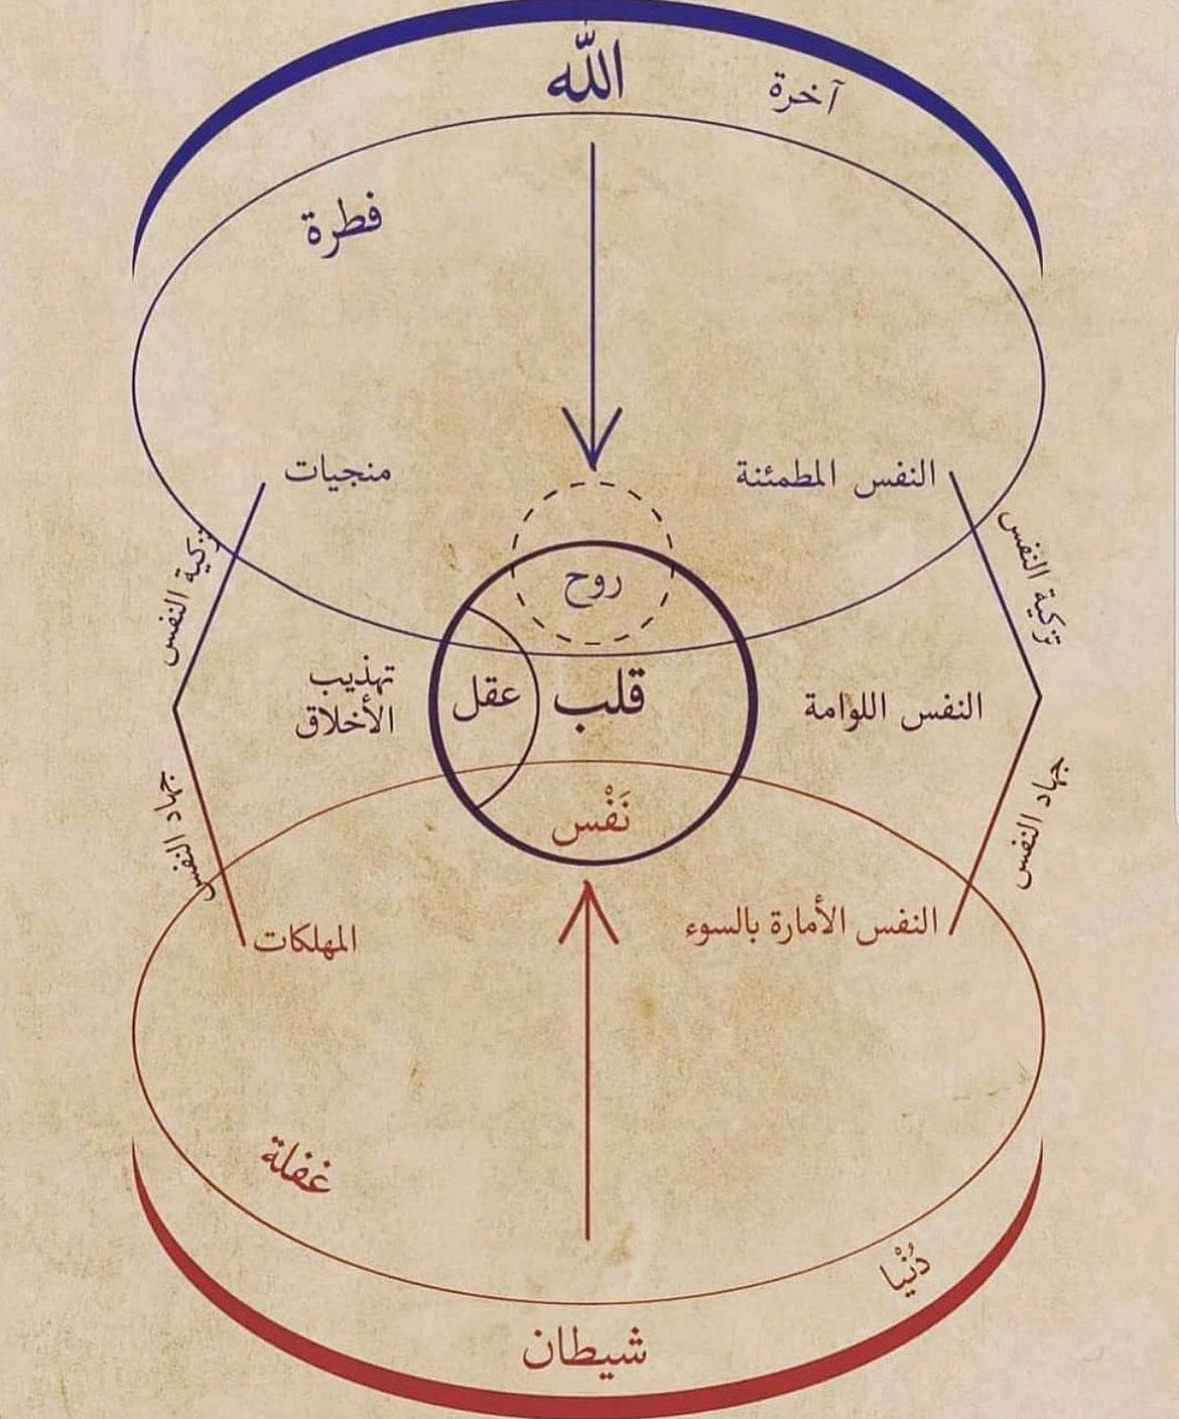 الله
آخرة
فطرة
النفس المطمئنة
منجيات
تزكية النفس
تزكية النفس
روح
قلب
عقل
النفس اللوامة
تهذيب
الأخلاق
نَفْس
جهاد النفس
جهاد النفس
النفس الأمارة بالسوء
المهلكات
غفلة
دُنْيا
شيطان